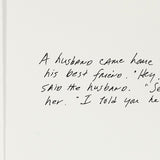 A husband came home
his best friend. "Hey,
said the husband. "So
her. "I told you he